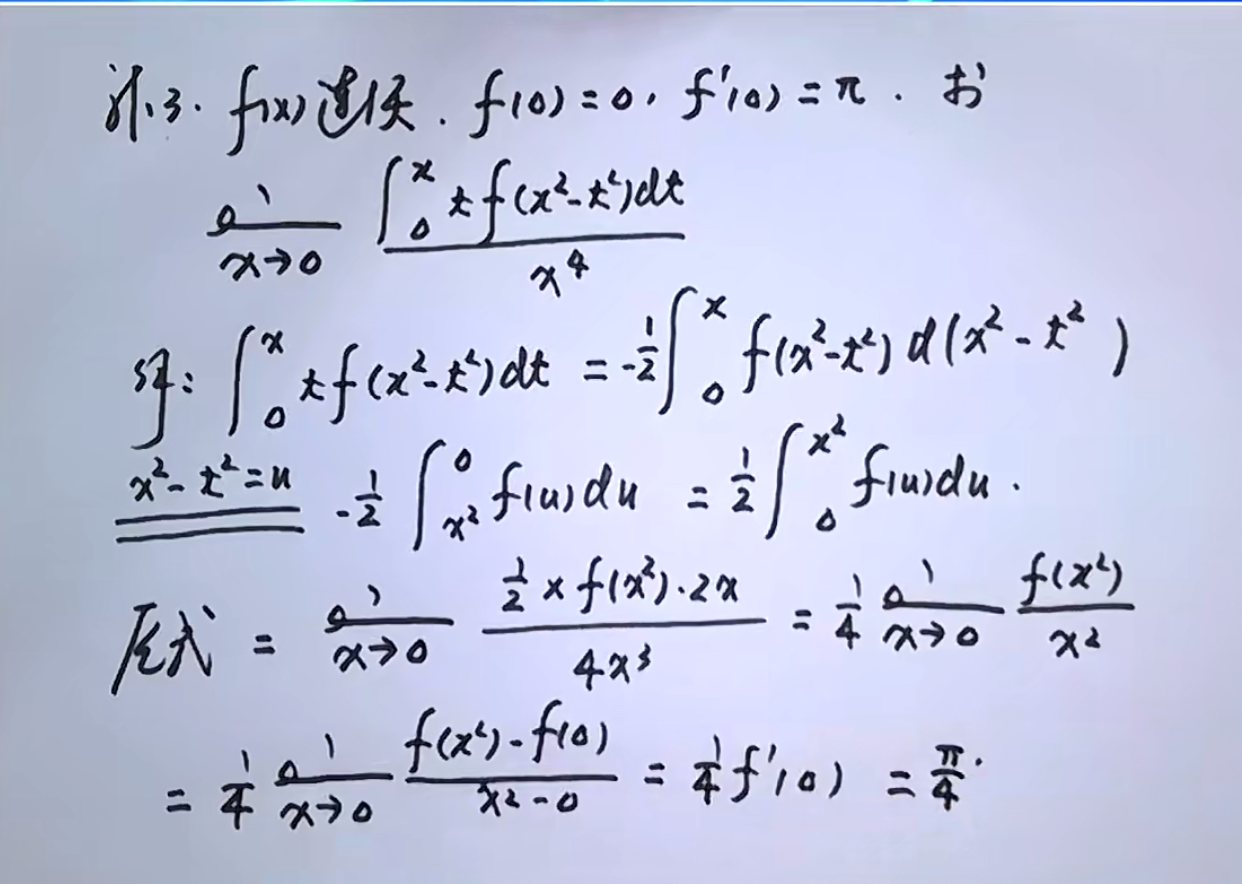 例3. f(x)连续. f(0)=0, f'(0)=π. 求
lim x→0 ∫₀ˣ t f(x²-t²)dt / x⁴
解: ∫₀ˣ t f(x²-t²)dt = -1/2 ∫₀ˣ f(x²-t²) d(x²-t²)
x²-t²=u -1/2 ∫_{x²}^0 f(u)du = 1/2 ∫₀^{x²} f(u)du.
原式 = lim x→0 (1/2 × f(x²)·2x) / 4x³ = 1/4 lim x→0 f(x²) / x²
= 1/4 lim x→0 (f(x²)-f(0)) / (x²-0) = 1/4 f'(0) = π/4.